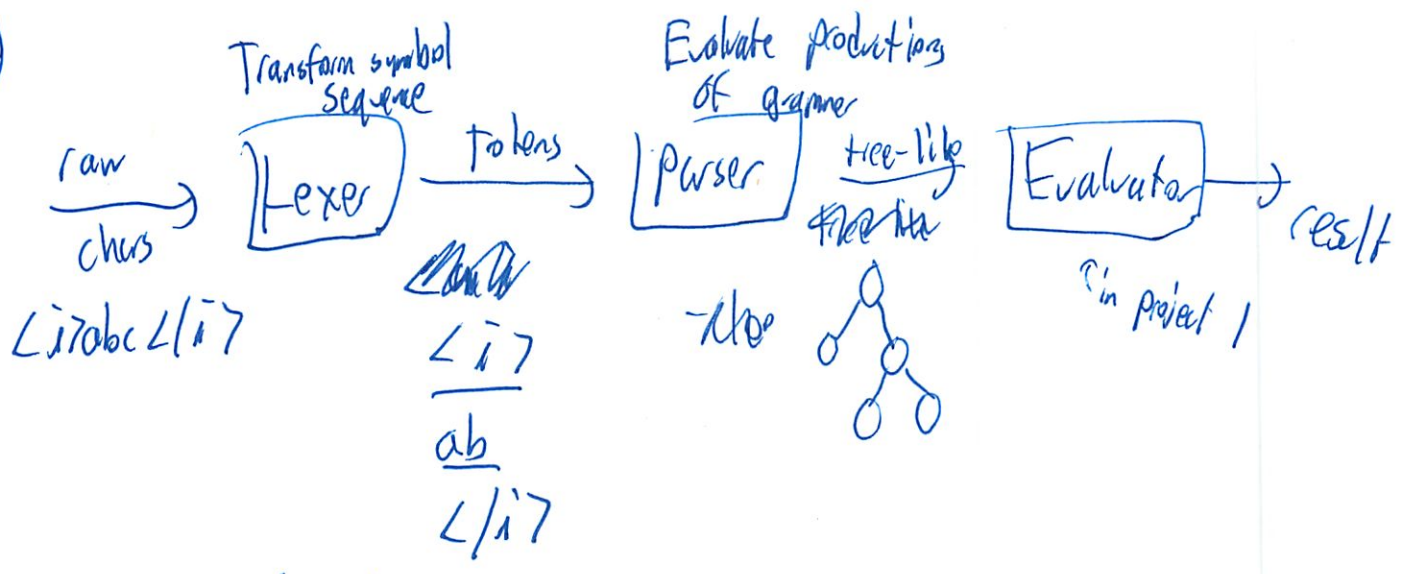 Transform symbol
sequence
Evaluate productions
of grammer
raw
chars
Lexer
tokens
Parser
tree-like
Evaluator
result
<i>abc</i>
<i>
ab
</i>
in project 1